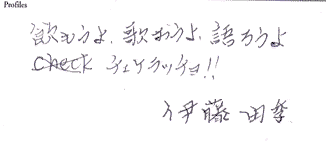 Profiles
飲もうよ、歌おうよ、語ろうよ
check チェケラッチョ!!
伊藤 由季